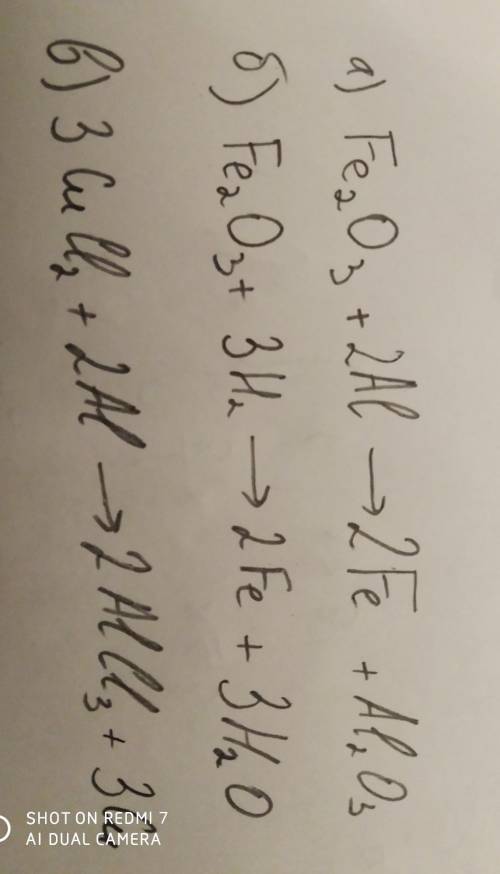 а) Fe₂O₃ + 2Al → 2Fe + Al₂O₃
б) Fe₂O₃ + 3H₂ → 2Fe + 3H₂O
в) 3CuCl₂ + 2Al → 2AlCl₃ + 3Cu
SHOT ON REDMI 7
AI DUAL CAMERA